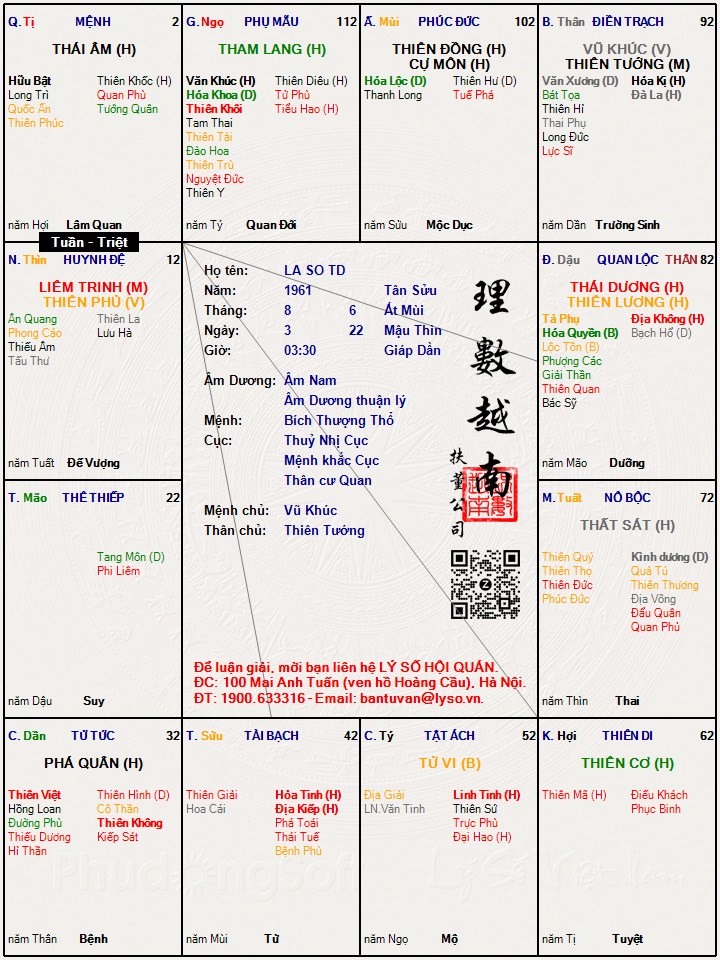 Q. Tị MỆNH 2
THÁI ÂM (H)
Hữu Bật Thiên Khốc (H)
Long Trì Quan Phù
Quốc Ấn Tướng Quân
Thiên Phúc
năm Hợi Lâm Quan
G. Ngọ PHỤ MẪU 112
THAM LANG (H)
Văn Khúc (H) Thiên Diêu (H)
Hóa Khoa (D) Tử Phù
Thiên Khôi Tiểu Hao (H)
Tam Thai
Thiên Tài
Đào Hoa
Thiên Trù
Nguyệt Đức
Thiên Y
năm Tý Quan Đới
Ấ. Mùi PHÚC ĐỨC 102
THIÊN ĐỒNG (H)
CỰ MÔN (H)
Hóa Lộc (D) Thiên Hư (D)
Thanh Long Tuế Phá
năm Sửu Mộc Dục
B. Thân ĐIỀN TRẠCH 92
VŨ KHÚC (V)
THIÊN TƯỚNG (M)
Văn Xương (D) Hóa Kị (H)
Bát Tọa Đà La (H)
Thiên Hỉ
Thai Phụ
Long Đức
Lực Sĩ
năm Dần Trường Sinh
Tuần - Triệt
N. Thìn HUYNH ĐỆ 12
LIÊM TRINH (M)
THIÊN PHỦ (V)
Ân Quang Thiên La
Phong Cáo Lưu Hà
Thiếu Âm
Tấu Thư
năm Tuất Đế Vượng
Họ tên: LA SO TD
Năm: 1961 Tân Sửu
Tháng: 8 6 Ất Mùi
Ngày: 3 22 Mậu Thìn
Giờ: 03:30 Giáp Dần
Âm Dương: Âm Nam
Âm Dương thuận lý
Mệnh: Bích Thượng Thổ
Cục: Thuỷ Nhị Cục
Mệnh khắc Cục
Thân cư Quan
Mệnh chủ: Vũ Khúc
Thân chủ: Thiên Tướng
理數越南
扶董公司
Z
Để luận giải, mời bạn liên hệ LÝ SỐ HỘI QUÁN.
ĐC: 100 Mai Anh Tuấn (ven hồ Hoàng Cầu), Hà Nội.
ĐT: 1900.633316 - Email: bantuvan@lyso.vn.
Đ. Dậu QUAN LỘC THÂN 82
THÁI DƯƠNG (H)
THIÊN LƯƠNG (H)
Tả Phụ Địa Không (H)
Hóa Quyền (B) Bạch Hổ (D)
Lộc Tồn (B)
Phượng Các
Giải Thần
Thiên Quan
Bác Sỹ
năm Mão Dưỡng
T. Mão THÊ THIẾP 22
Tang Môn (D)
Phi Liêm
năm Dậu Suy
M. Tuất NÔ BỘC 72
THẤT SÁT (H)
Thiên Quý Kình dương (D)
Thiên Thọ Quả Tú
Thiên Đức Thiên Thương
Phúc Đức Địa Võng
Đẩu Quân
Quan Phủ
năm Thìn Thai
C. Dần TỬ TỨC 32
PHÁ QUÂN (H)
Thiên Việt Thiên Hình (D)
Hồng Loan Cô Thần
Đường Phù Thiên Không
Thiếu Dương Kiếp Sát
Hỉ Thần
năm Thân Bệnh
T. Sửu TÀI BẠCH 42
Thiên Giải Hỏa Tinh (H)
Hoa Cái Địa Kiếp (H)
Phá Toái
Thái Tuế
Bệnh Phù
năm Mùi Tử
C. Tý TẬT ÁCH 52
TỬ VI (B)
Địa Giải Linh Tinh (H)
LN.Văn Tinh Thiên Sứ
Trực Phù
Đại Hao (H)
năm Ngọ Mộ
K. Hợi THIÊN DI 62
THIÊN CƠ (H)
Thiên Mã (H) Điếu Khách
Phục Binh
năm Tị Tuyệt